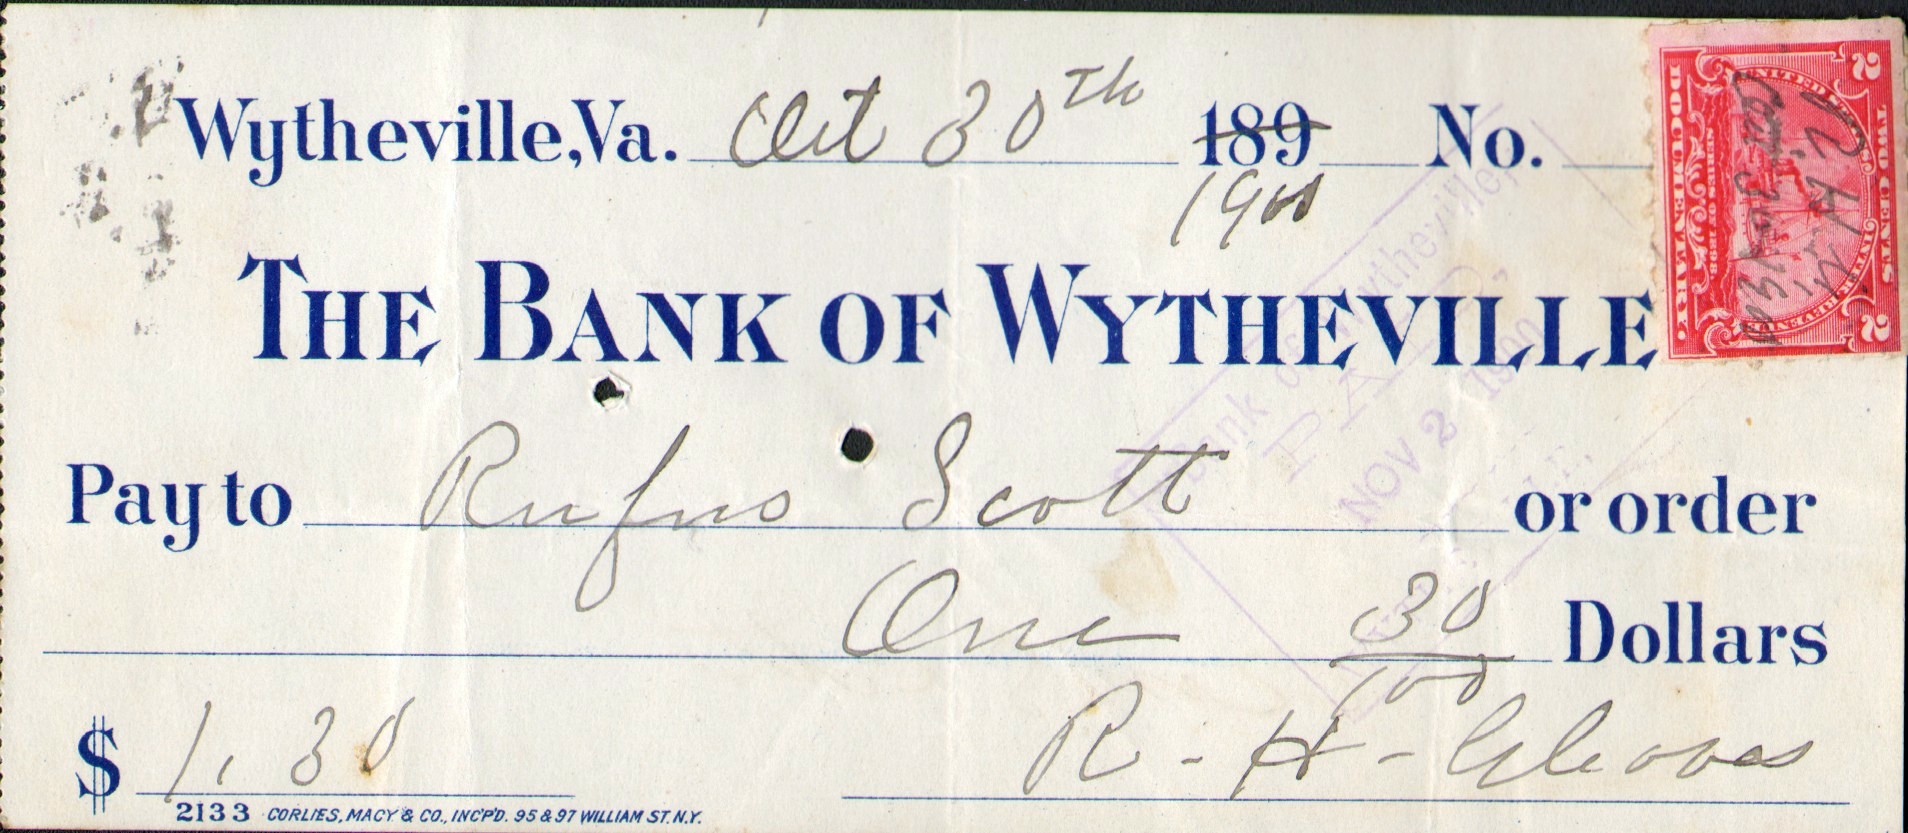 Wytheville, Va. Oct 30th 189 No.
1900
THE BANK OF WYTHEVILLE
Pay to Rufus Scott or order
One 30/100 Dollars
$ 1.30 R-H-Gleaves
2133 CORLIES, MACY & CO., INC'P'D. 95 & 97 WILLIAM ST. N.Y.
Bank of Wytheville,
PAID,
NOV 2 1900
TWO CENTS
UNITED STATES
INTER. REVENUE
SERIES OF 1898
DOCUMENTARY.
2 2
R H
Oct 30 1900